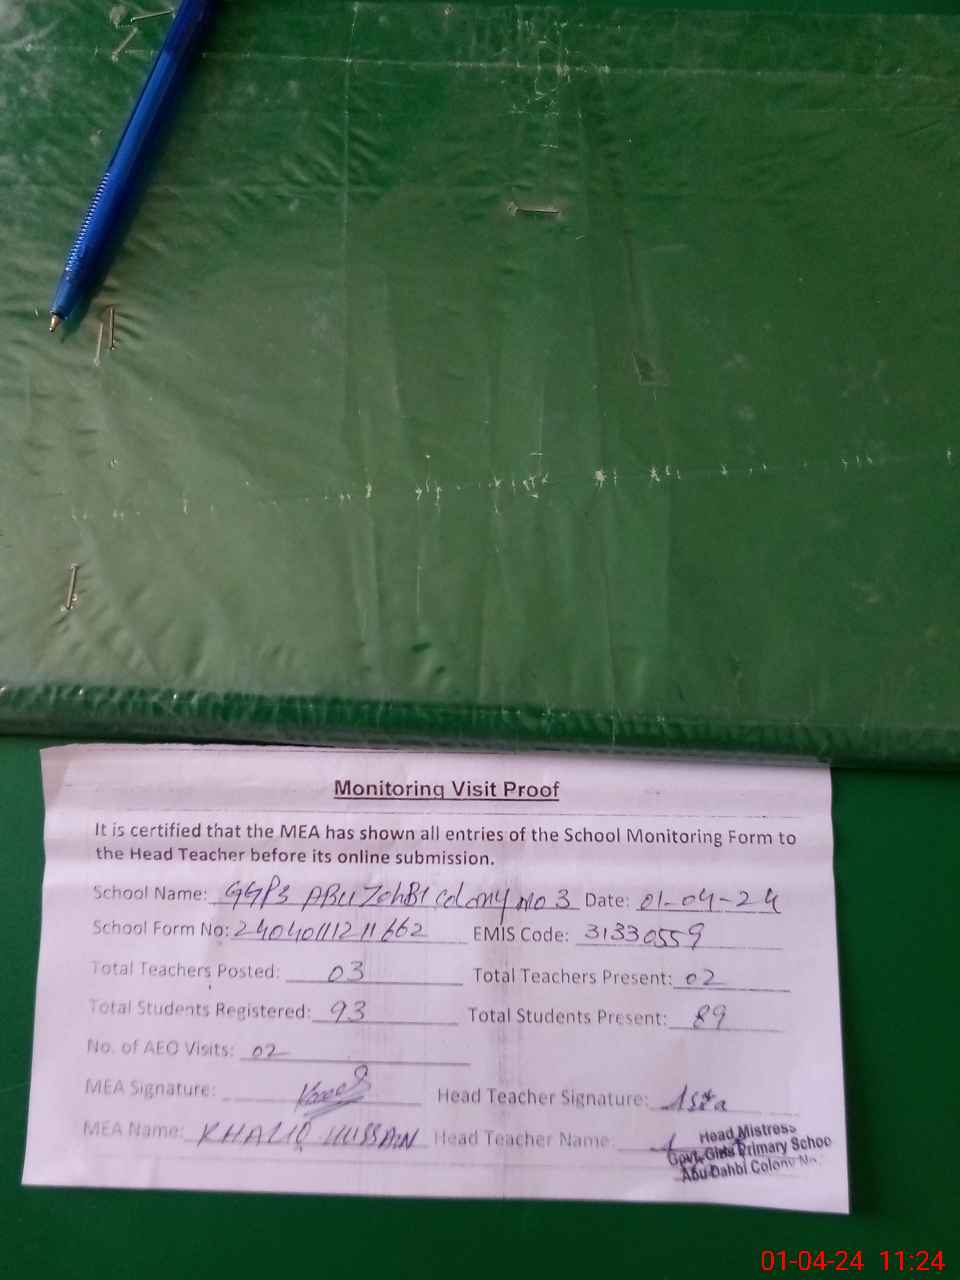 Monitoring Visit Proof
It is certified that the MEA has shown all entries of the School Monitoring Form to
the Head Teacher before its online submission.
School Name: GGPS ABU ZohBI Colony no 3 Date: 01-04-24
School Form No: 2404011211662 EMIS Code: 31330559
Total Teachers Posted: 03 Total Teachers Present: 02
Total Students Registered: 93 Total Students Present: 89
No. of AEO Visits: 02
MEA Signature: Head Teacher Signature: Asia
MEA Name: KHALIQ HUSSAIN Head Teacher Name:
Head Mistress
Govt. Girls Primary Schoo
Abu Dahbi Colony No.
01-04-24 11:24